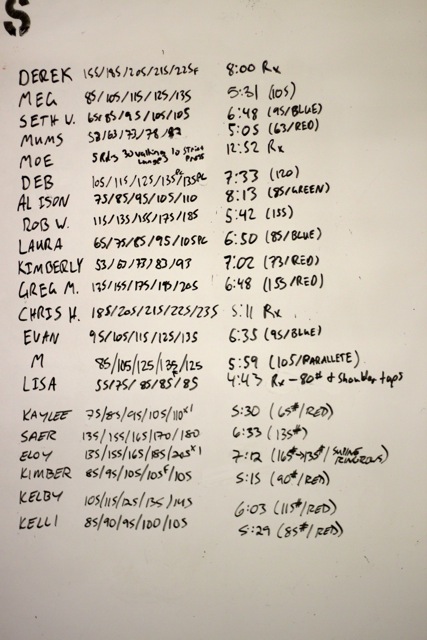 S
DEREK 155/195/205/215/225F 8:00 Rx
MEG 85/105/115/125/135 5:31 (105)
SETH V. 65/85/95/105/105 6:48 (95/BLUE)
MUMS 53/63/73/78/83 5:05 (63/RED)
MOE 5 Rds 30 walking lunges 10 strict press 12:52 Rx
DEB 105/115/125/135PC/135PC 7:33 (120)
ALISON 75/85/95/105/110 8:13 (85/GREEN)
ROB W. 115/135/155/175/185 5:42 (155)
LAURA 65/75/85/95/105PC 6:50 (85/BLUE)
KIMBERLY 53/63/73/83/93 7:02 (73/RED)
GREG M. 135/155/175/185/205 6:48 (155/RED)
CHRIS H. 185/205/215/225/235 5:11 Rx
EVAN 95/105/115/125/135 6:35 (95/BLUE)
M 85/105/125/135/125 5:59 (105/PARALLETE)
LISA 55/75/85/85/85 4:43 Rx - 80# & Shoulder taps
KAYLEE 75/85/95/105/110x1 5:30 (65#/RED)
SAER 135/155/165/170/180 6:33 (135#)
ELOY 135/155/165/185/205x1 7:12 (165#→135#/ RINGROWS)
KIMBER 85/95/105/105F/105 5:15 (90#/RED)
KELBY 105/115/125/135/145 6:03 (115#/RED)
KELLI 85/90/95/100/105 5:29 (85#/RED)